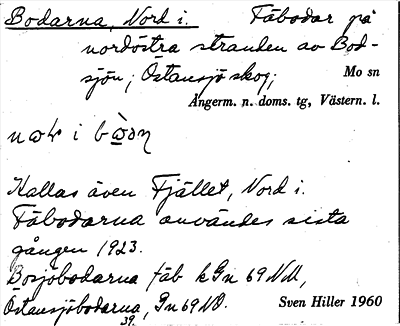 Bodarna, Nord i. Fäbodar på
nordöstra stranden av Bod-
sjön; Östansjö skog;
Mo sn
Ångerm. n. doms. tg, Västern. l.
i
Kallas även Fjället, Nord i.
Fäbodarna användes sista
gången 1923.
Bosjöbodarna fäb kGn 69 NV,
Östansjöbodarna, Gn 69 NO.
39.
Sven Hiller 1960